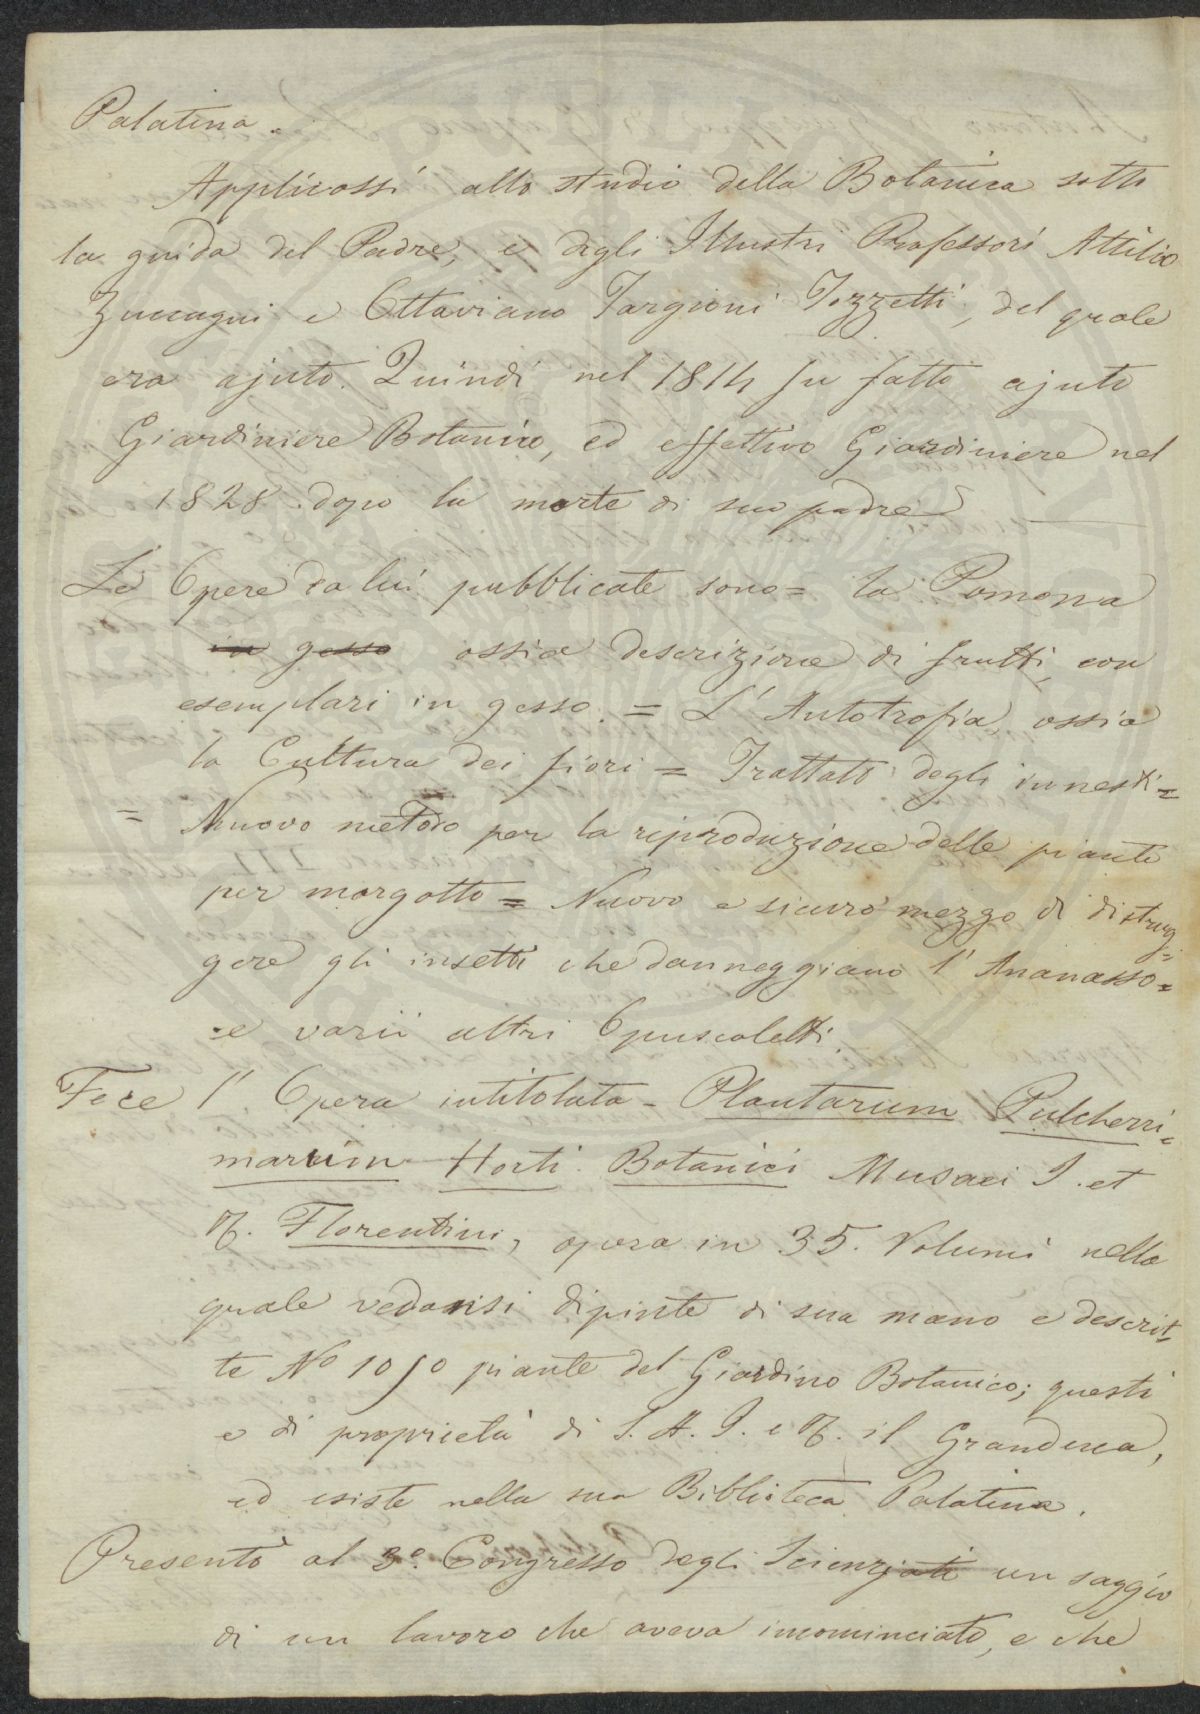 Palatina.
Applicossi allo studio della Botanica sotto
la guida del Padre, e degli Illustri Professori Attilio
Zuccagni e Ottaviano Targioni Tozzetti, del quale
era ajuto. Quindi nel 1814 fu fatto ajuto
Giardiniere Botanico, ed effettivo Giardiniere nel
1828. dopo la morte di suo padre
Le Opere da lui pubblicate sono = la Pomona
in gesso ossia descrizione di frutti, con
esemplari in gesso. = L'Autotrofia ossia
la Cultura dei fiori = Trattato degli innesti =
= Nuovo metodo per la riproduzione delle piante
per margotto = Nuovo e sicuro mezzo di distrug-
gere gli insetti che danneggiano l'Ananasso =
e varii altri Opuscoletti
Fece l'Opera intitolata - Plantarum Pulcherri=
marum Horti Botanici Musaei I. et
R. Florentini, opera in 35. Volumi nella
quale vedonsi dipinte di sua mano e descrit-
te No 1050 piante del Giardino Botanico; questi
e di proprietà di S. A. I. e R. il Granduca,
ed esiste nella sua Biblioteca Palatina.
Presentò al 3o. Congresso degli Scienziati un saggio
di un lavoro che aveva incominciato, e che